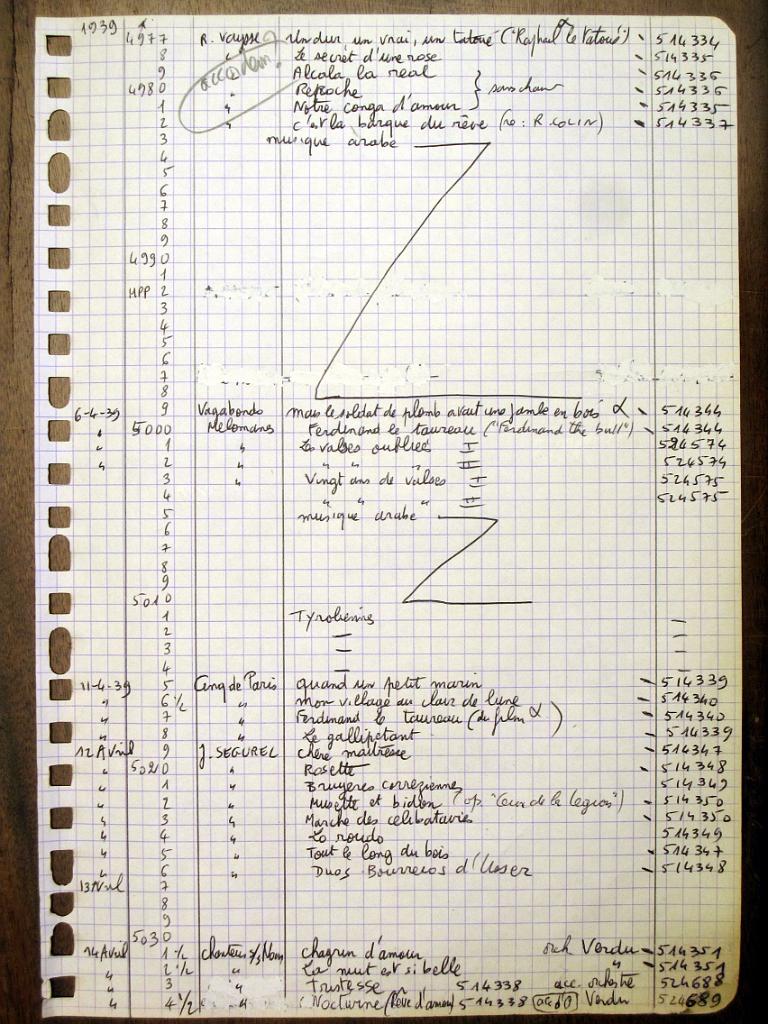 1939 4977 R. Vaysse Un dur un vrai, un tatoué ("Raphaël le Tatoué") 514334
8 " Le secret d'une rose 514335
9 Alcala la real 514336
4980 " Reproche } sans chant 514336
1 " Notre conga d'amour } 514335
2 " c'est la barque du rêve (re: R. COLIN) 514337
accordéon
3 musique arabe
4
5
6
7
8
9
4990
1
MPP 2
3
4
5
6
7
8
6-4-39 9 Vagabonds mais le soldat de plomb avait une jambe en bois α 514344
" 5000 Melomans Ferdinand le taureau ("Ferdinand the bull") 514344
" 1 " Les valses oubliées I 524574
" 2 " " " II 524574
3 " Vingt ans de valses I 524575
4 " " " II 524575
5 musique arabe
6
7
8
9
5010
1 Tyroliennes —
2 — —
3 — —
4 — —
11-4-39 5 Cinq de Paris quand un petit marin 514339
" 6 1/2 " mon village au clair de lune 514340
" 7 " Ferdinand le taureau (du film α) 514340
" 8 " Le gallipetant 514339
12 Avril 9 J. SEGUREL chère maîtresse 514347
" 5020 " Rosette 514348
" 1 " Bruyères corréziennes 514349
" 2 " Musette et bidon (op. "Ceux de la Legion") 514350
" 3 " Marche des celibataires 514350
" 4 " Lo roudo 514349
" 5 " Tout le long du bois 514347
" 6 " Duos Bourreios d'Usser 514348
13 Avril 7
8
9
5030
14 Avril 1 1/2 chanteur s/s Nom chagrin d'amour orch Verdu 514351
" 2 1/2 " La nuit est si belle " 514351
" 3 " Tristesse 514338 acc. orchestre 524688
" 4 1/2 " Nocturne (Rêve d'amour) 514338 Verdu 524689